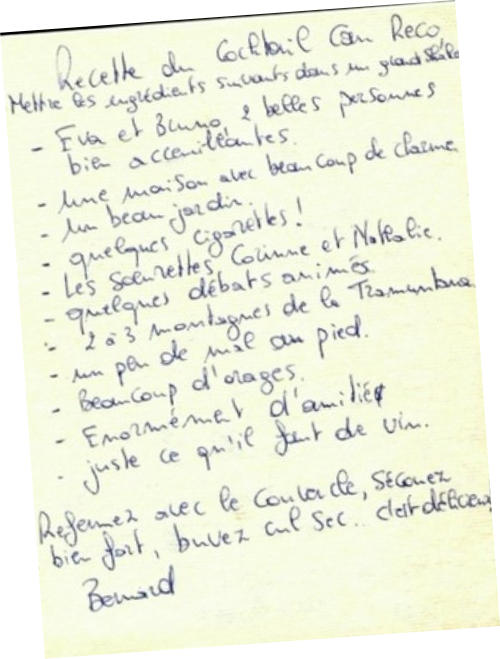 Recette du Cocktail Can Reco
Mettre les ingrédients suivants dans un grand
- Eva et Bruno, 2 belles personnes
bien acceuillantes.
- une maison avec beaucoup de charme
- un beau jardin.
- quelques cigarettes !
- Les soeurettes Corinne et Nathalie.
- quelques débats animés
- 2 à 3 montagnes de la Tramuntana
- un peu de mal au pied.
- Beaucoup d'orages.
- Enormément d'amitié
- juste ce qu'il faut de vin.
Refermez avec le couvercle, secouez
bien fort, buvez cul sec.. c'est délicieux
Bernard